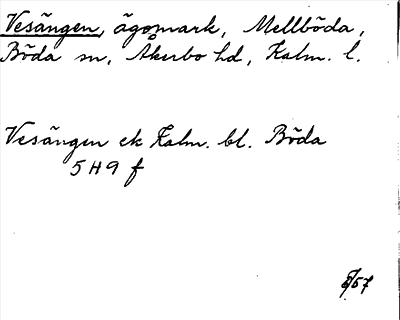 Vesängen, ägomark, Mellböda,
Böda sn, Åkerbo hd, Kalm. l.
Vesängen ek Kalm. bl. Böda
5 H 9 f